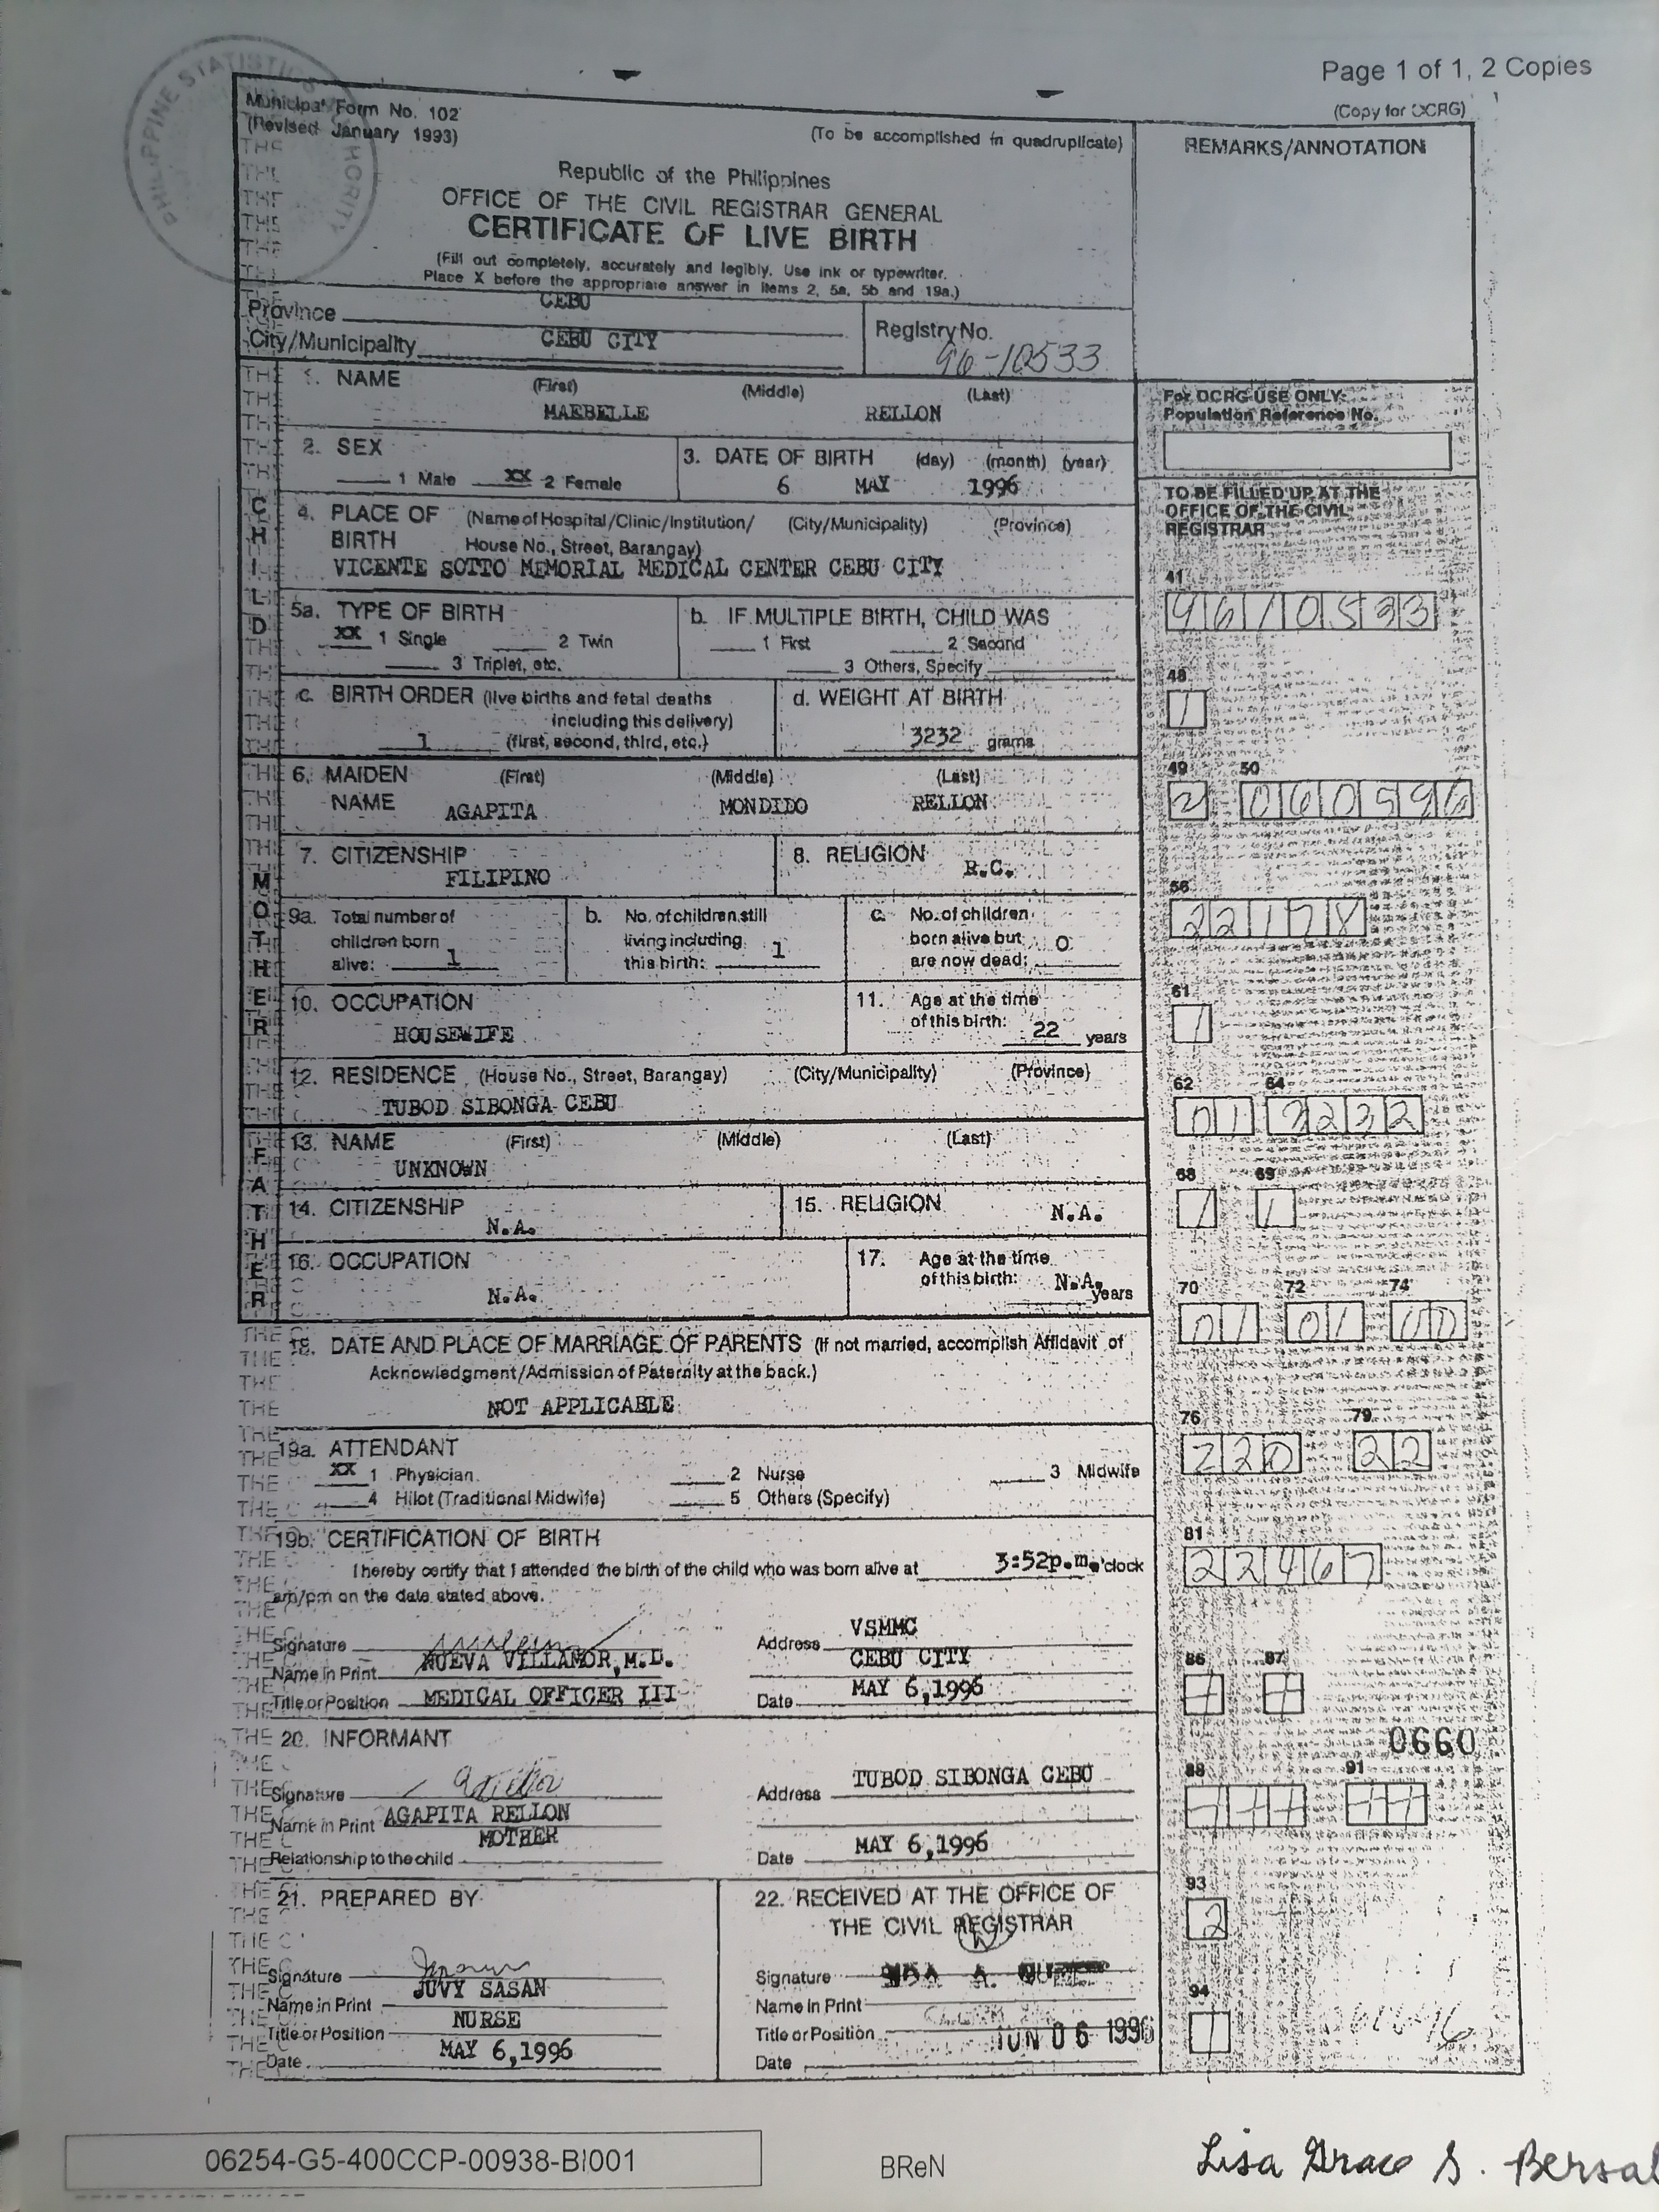 Page 1 of 1, 2 Copies
(Copy for OCRG)
PHILIPPINE STATISTICS AUTHORITY
Municipal Form No. 102
(Revised January 1993)
(To be accomplished in quadruplicate)
REMARKS/ANNOTATION
Republic of the Philippines
OFFICE OF THE CIVIL REGISTRAR GENERAL
CERTIFICATE OF LIVE BIRTH
(Fill out completely, accurately and legibly. Use ink or typewriter.
Place X before the appropriate answer in items 2, 5a, 5b and 19a.)
Province CEBU
City/Municipality CEBU CITY
Registry No. 96-10533
CHILD
1. NAME (First) (Middle) (Last)
MAEBELLE RELLON
For OCRG USE ONLY:
Population Reference No.
2. SEX
1 Male XX 2 Female
3. DATE OF BIRTH (day) (month) (year)
6 MAY 1996
TO BE FILLED UP AT THE
OFFICE OF THE CIVIL
REGISTRAR
4. PLACE OF BIRTH (Name of Hospital/Clinic/Institution/ (City/Municipality) (Province)
House No., Street, Barangay)
VICENTE SOTTO MEMORIAL MEDICAL CENTER CEBU CITY
41
9610533
5a. TYPE OF BIRTH
XX 1 Single 2 Twin
3 Triplet, etc.
b. IF MULTIPLE BIRTH, CHILD WAS
1 First 2 Second
3 Others, Specify
48
1
c. BIRTH ORDER (live births and fetal deaths
including this delivery)
1 (first, second, third, etc.)
d. WEIGHT AT BIRTH
3232 grams
MOTHER
6. MAIDEN NAME (First) (Middle) (Last)
AGAPITA MONDIDO RELLON
49 50
2 060596
7. CITIZENSHIP
FILIPINO
8. RELIGION R.C.
56
22178
9a. Total number of
children born
alive: 1
b. No. of children still
living including
this birth: 1
c. No. of children
born alive but
are now dead: 0
10. OCCUPATION
HOUSEWIFE
11. Age at the time
of this birth: 22 years
61
1
12. RESIDENCE (House No., Street, Barangay) (City/Municipality) (Province)
TUBOD SIBONGA CEBU
62 64
01 3232
FATHER
13. NAME (First) (Middle) (Last)
UNKNOWN
68 69
1 1
14. CITIZENSHIP
N.A.
15. RELIGION
N.A.
16. OCCUPATION
N.A.
17. Age at the time
of this birth: N.A. years
70 72 74
01 01 00
18. DATE AND PLACE OF MARRIAGE OF PARENTS (If not married, accomplish Affidavit of
Acknowledgment/Admission of Paternity at the back.)
NOT APPLICABLE
76 79
220 22
19a. ATTENDANT
XX 1 Physician 2 Nurse 3 Midwife
4 Hilot (Traditional Midwife) 5 Others (Specify)
19b. CERTIFICATION OF BIRTH
I hereby certify that I attended the birth of the child who was born alive at 3:52p.m. o'clock
am/pm on the date stated above.
81
22467
Signature
Name in Print NUEVA VILLAMOR, M.D.
Title or Position MEDICAL OFFICER III
Address VSMMC
CEBU CITY
Date MAY 6,1996
86 87
0660
20. INFORMANT
Signature
Name in Print AGAPITA RELLON
MOTHER
Relationship to the child
Address TUBOD SIBONGA CEBU
Date MAY 6,1996
88 91
21. PREPARED BY
Signature
Name in Print JUVY SASAN
Title or Position NURSE
Date MAY 6,1996
22. RECEIVED AT THE OFFICE OF
THE CIVIL REGISTRAR
Signature
Name in Print
Title or Position
JUN 06 1996
Date
93
2
94
1
06254-G5-400CCP-00938-BI001
BReN
Lisa Grace S. Bersal